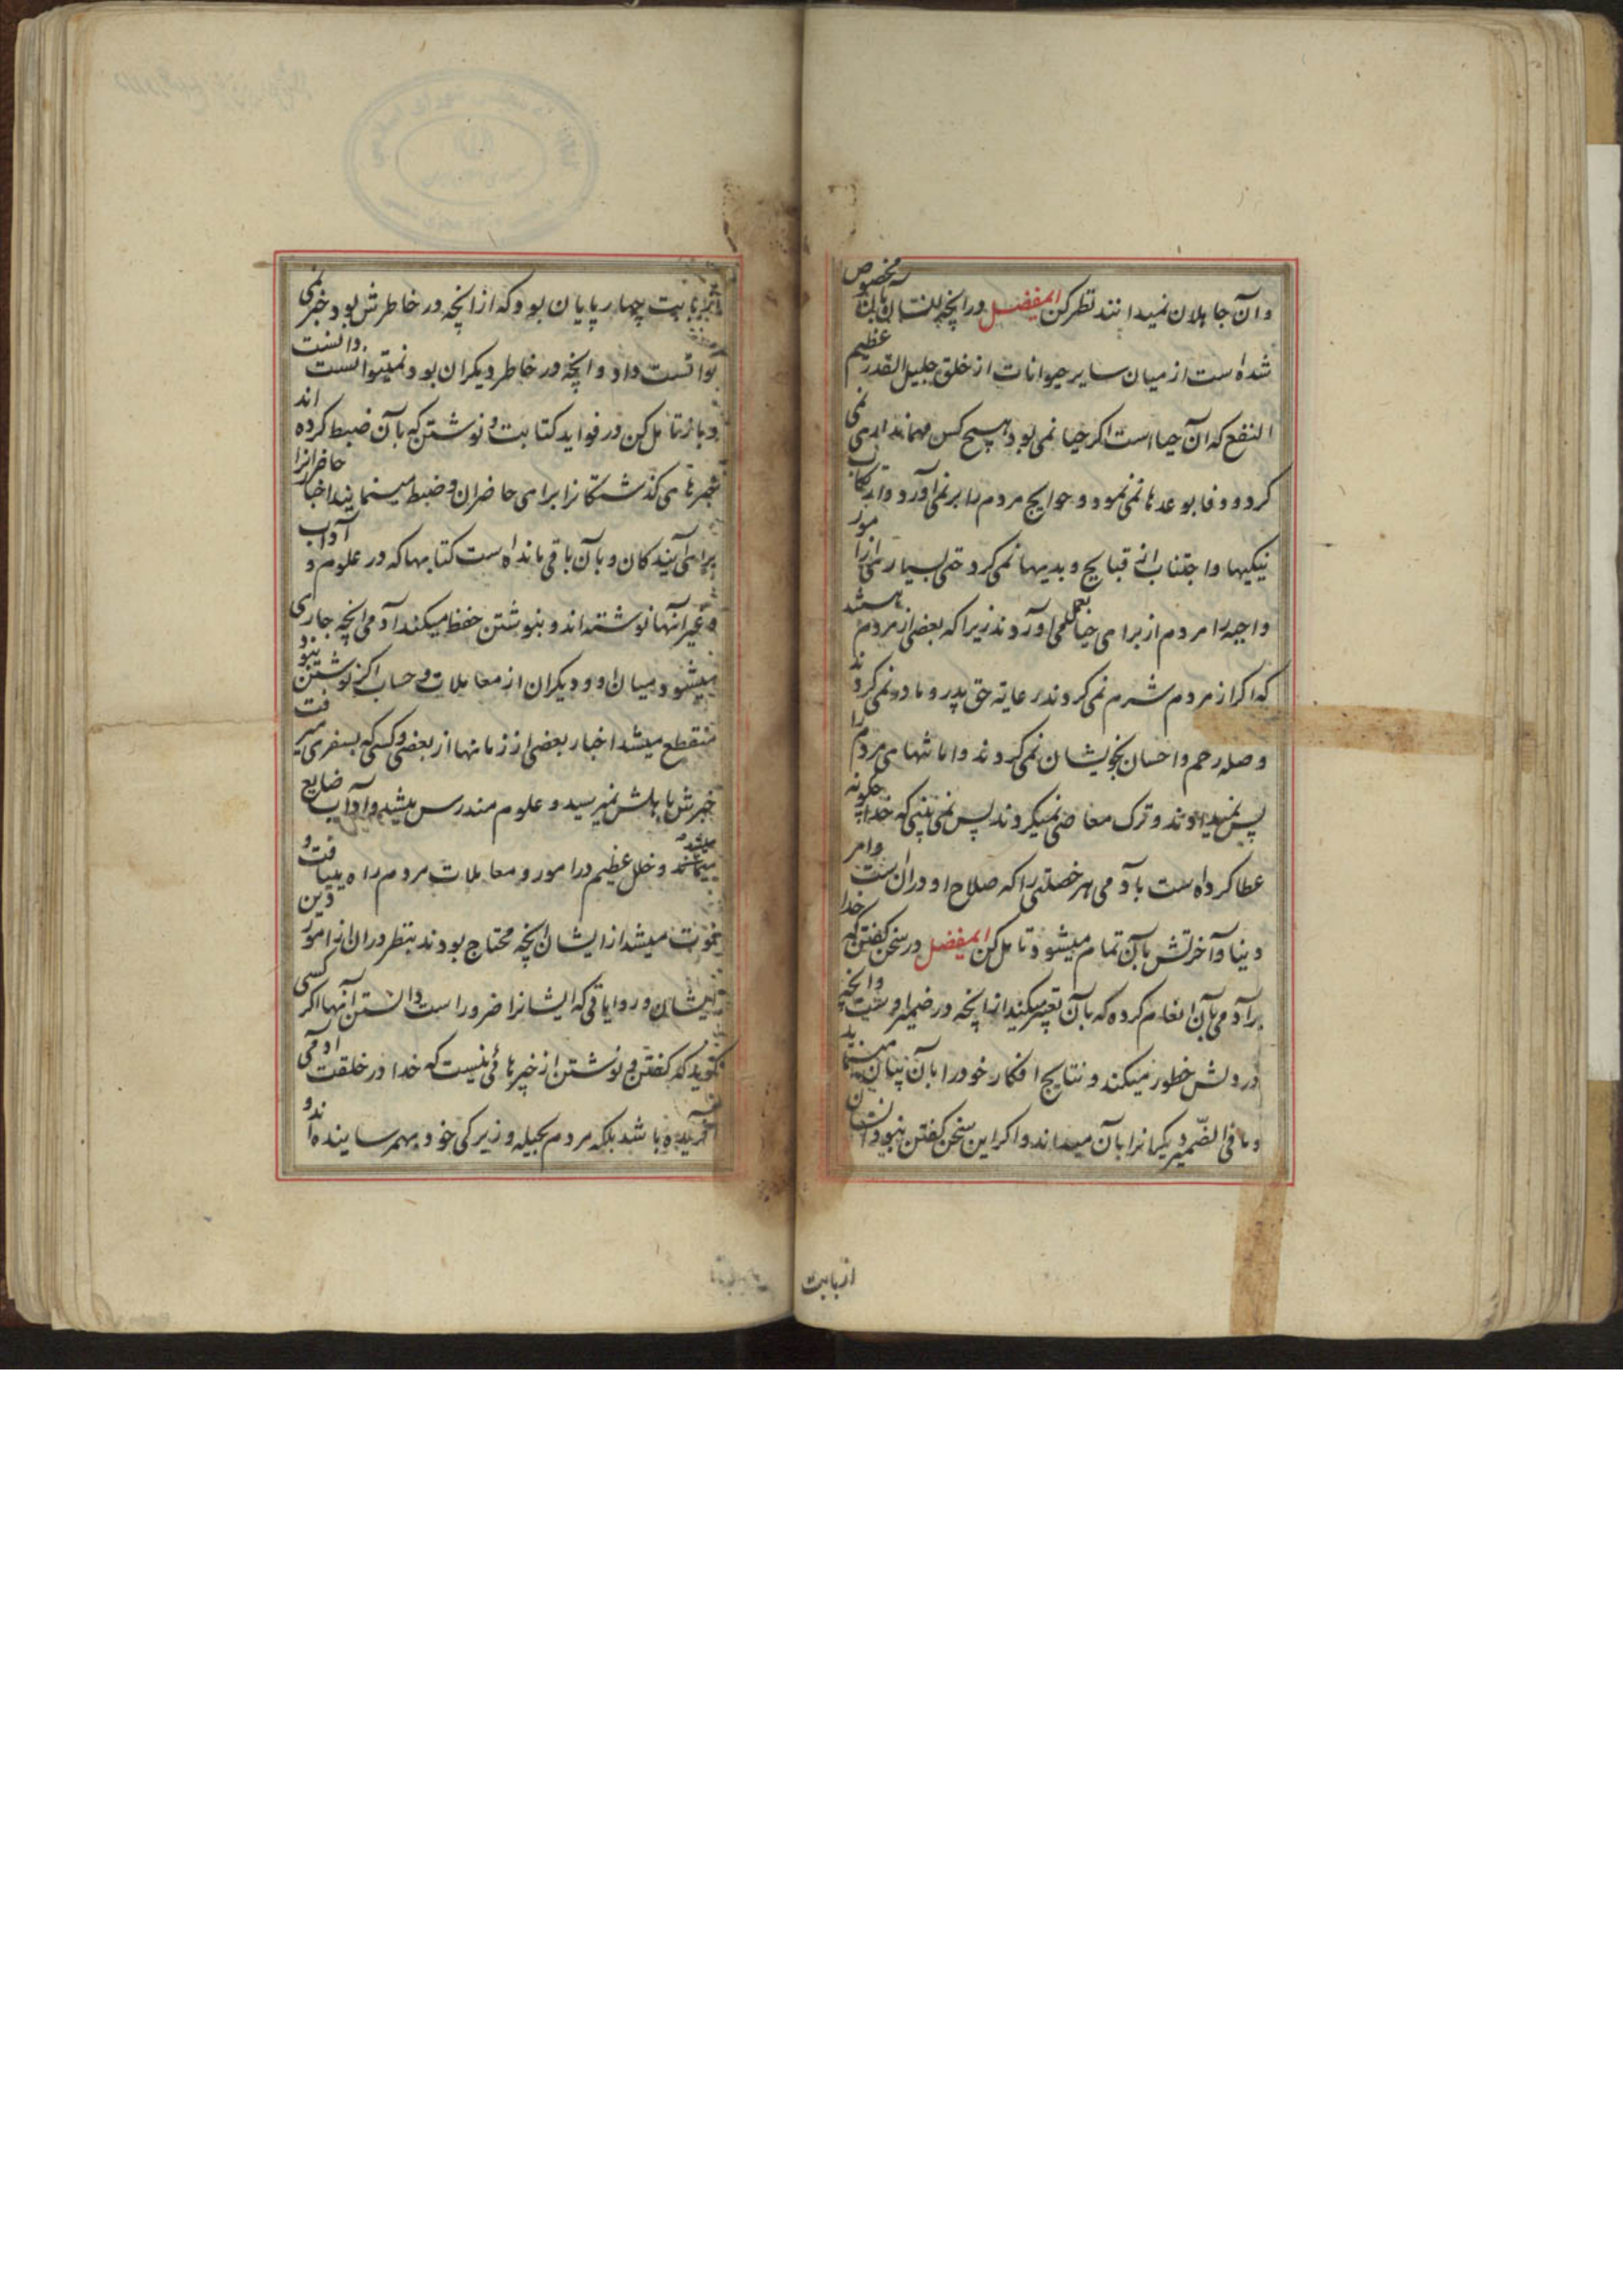 وآن جاهلان نمیدانند نظر کن ایمفضل در آنچه انسان بآن مخصوص
شده‌ است از میان سایر حیوانات از خلق جلیل القدر عظیم
النفع که آن حیا است اگر حیا نمی بود هیچ کس مهمانداری نمی
کرد و وفا بوعدها نمی نمود و حوایج مردم را بر نمی آورد و ارتکاب
نیکیها و اجتناب از قبایح و بدیها نمی کرد حتی بسیاری از امور
واجبه را مردم از برای حیا بعمل می آورند زیرا که بعضی از مردم هستند
که اگر از مردم شرم نمی کردند رعایه حق پدر و مادر نمی کردند
و صله رحم و احسان بخویشان نمی کردند و امانتهای مردم را
پس نمیدادند و ترک معاصی نمیکردند پس نمی بینی که خدا چگونه
عطا کرده است بآدمی هر خصلتی را که صلاح او در آن است و امر
دنیا و آخرتش بآن تمام میشود تامل کن ایمفضل در سخن گفتن که خدا
برآدمی بآن انعام کرده که بآن تعبیر میکند از آنچه در ضمیر اوست و آنچه
در دلش خطور میکند و نتایج افکار خود را بآن بیان مینماید
و ما فی الضمیر دیگرانرا بآن میداند و اگر این سخن گفتن نبود انسان
از بابت
بابت چهارپایان بود که از آنچه در خاطرش بود خبر نمی
توانست داد و آنچه در خاطر دیگران بود نمیتوانست دانست
و باز تامل کن در فواید کتابت و نوشتن که بآن ضبط کرده اند
خبرهای گذشتگانرا برای حاضران و ضبط مینمایند اخبار حاضرانرا
برای آیندگان و بآن باقی مانده است کتابها که در علوم و آداب
و غیر آنها نوشته‌اند و بنوشتن حفظ میکند آدمی آنچه جاری
میشود میان او و دیگران از معاملات و حساب و اگر نوشتن نبود
منقطع میشد اخبار بعضی از زمانها از بعضی و کسی که بسفری میرفت
خبرش باهلش نمیرسید و علوم مندرس میشد و آداب ضایع
میشد و خلل عظیم در امور و معاملات مردم راه مییافت و
فوت میشد از ایشان آنچه محتاج بودند بنظر در آن از امور دین
ایشان و روایاتی که ایشانرا ضرور است دانستن آنها اگر کسی
گوید که گفتن و نوشتن از چیرهائی نیست که خدا در خلقت آدمی
آفریده باشد بلکه مردم بحیله و زیرکی خود بهم رسانیده‌اند و